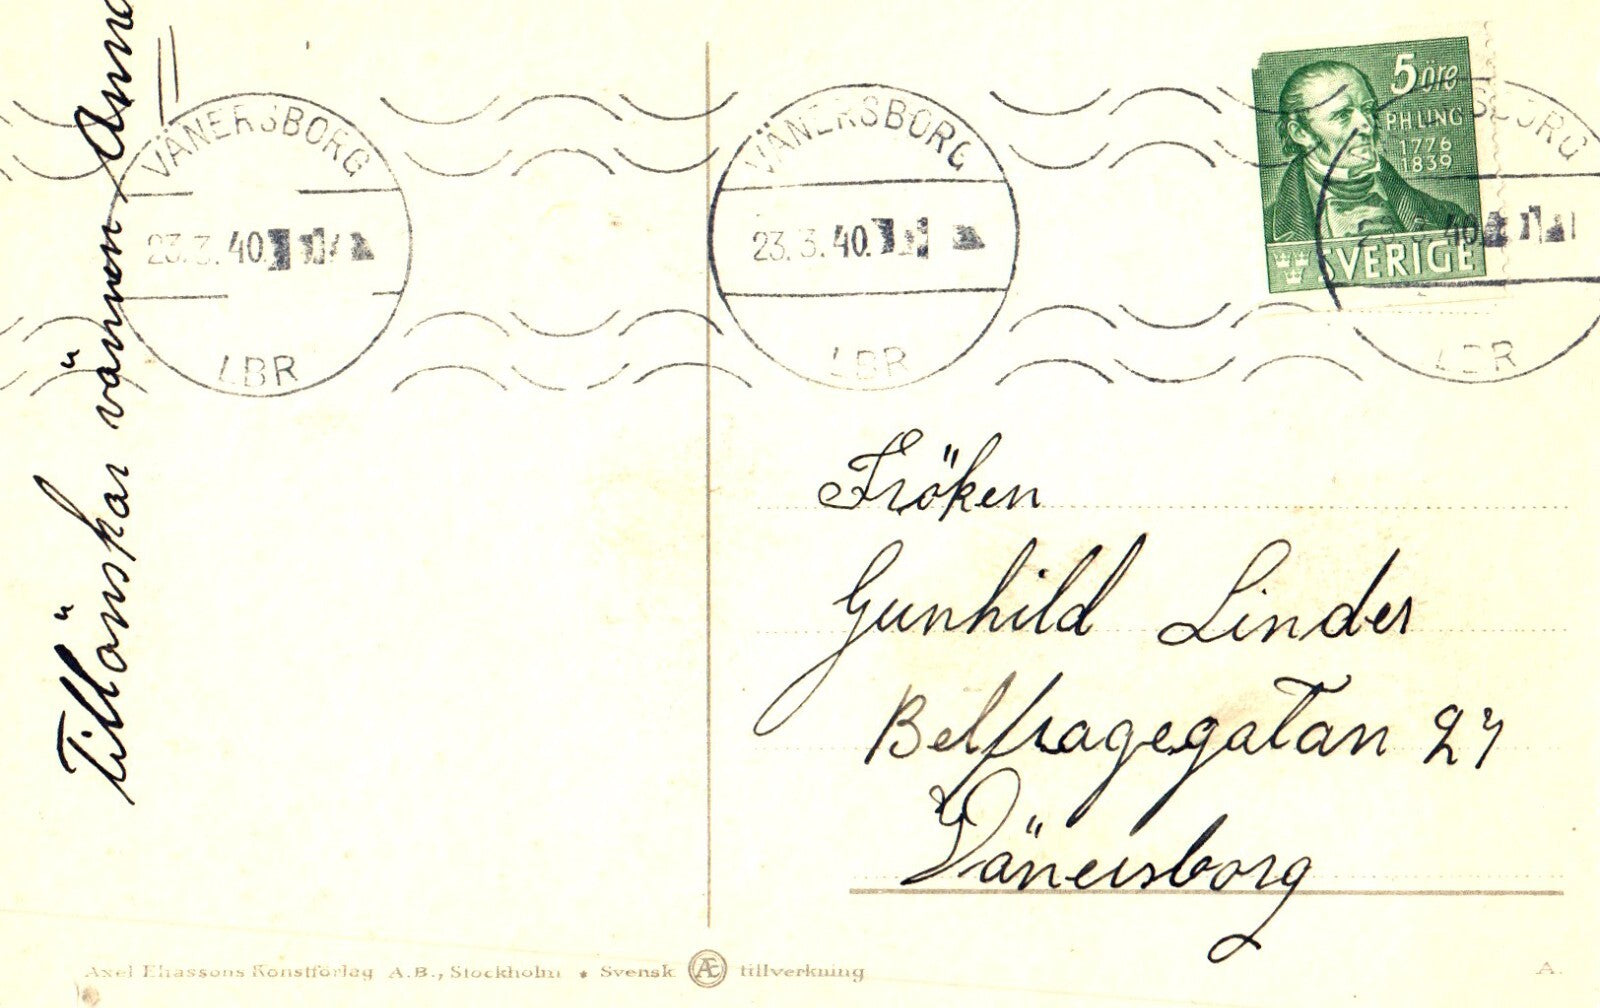 Tillönskar vännen Anna
VÄNERSBORG
23.3.40.
LBR
VÄNERSBORG
23.3.40.
LBR
5 öre
PH LING
1776
1839
SVERIGE
SBORG
40
LBR
Fröken
Gunhild Linder
Belfragegatan 27
Vänersborg
Axel Eliassons Konstförlag A.B., Stockholm * Svensk Æ tillverkning
A.